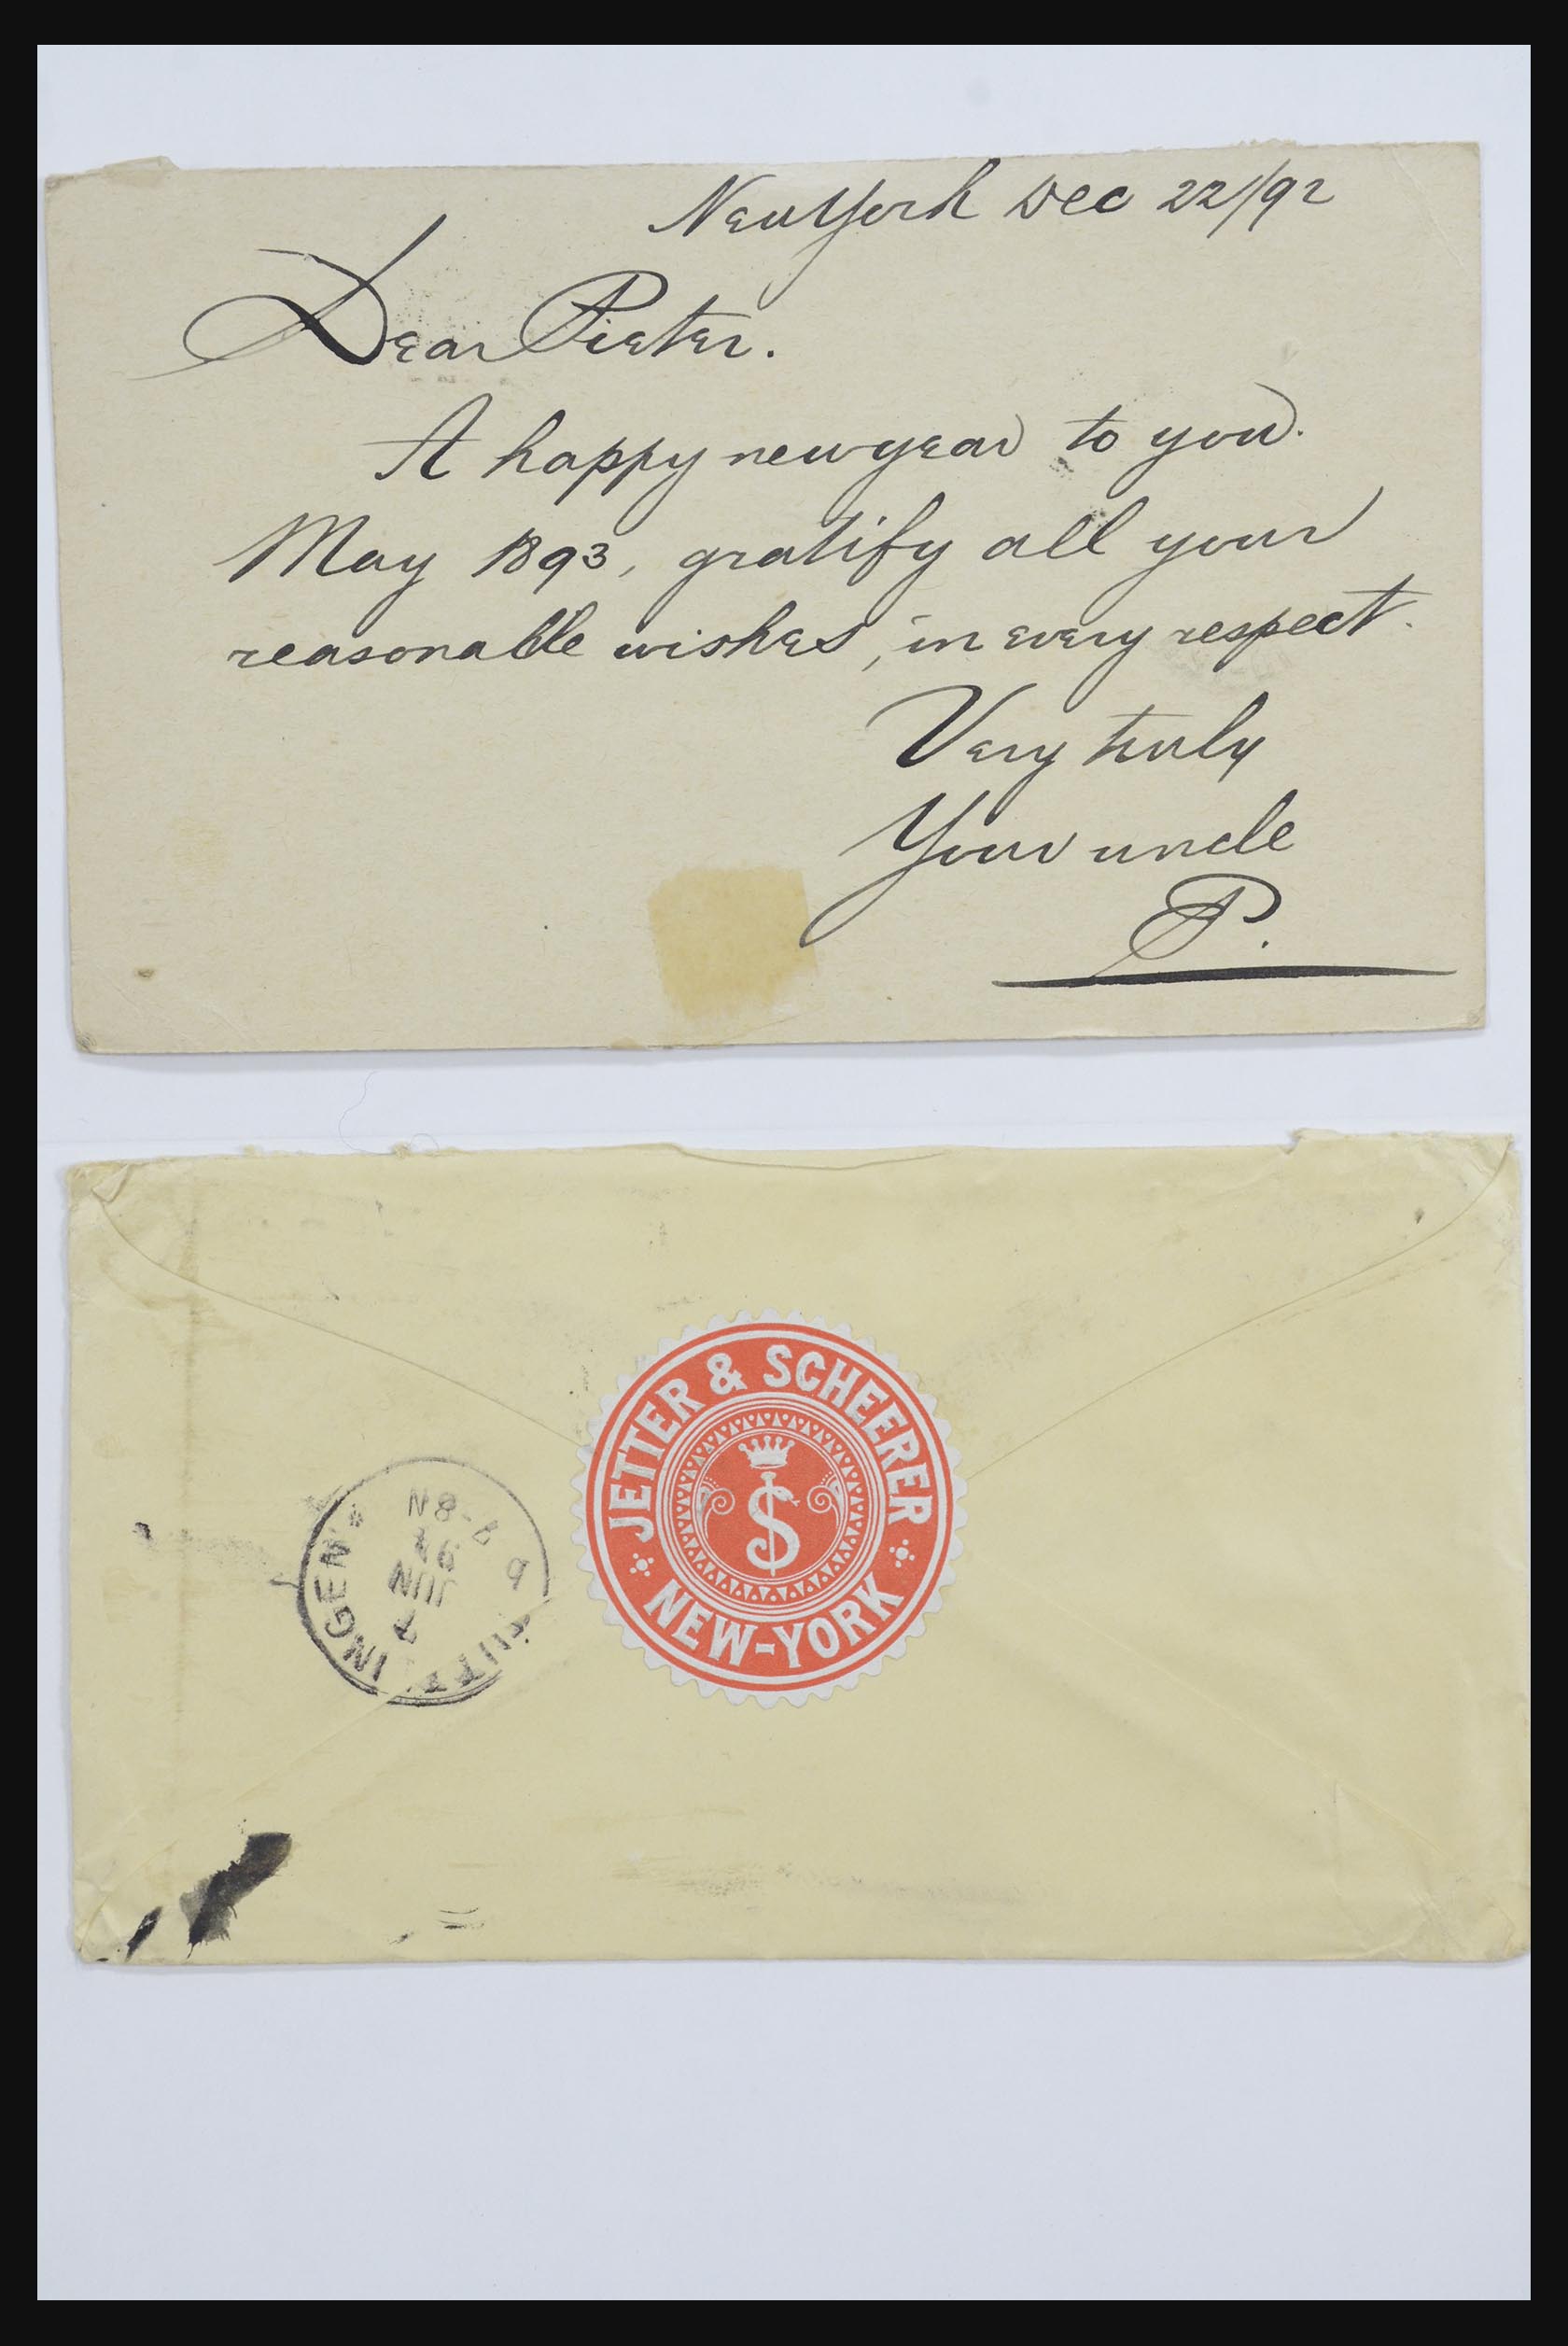 New York Dec 22/92
Dear Pieter.
A happy newyear to you.
May 1893, gratify all your
reasonable wishes, in every respect.
Very truly
Your uncle
P.
JETTER & SCHEERER
NEW-YORK
S
INGEN
JUN
7-8N